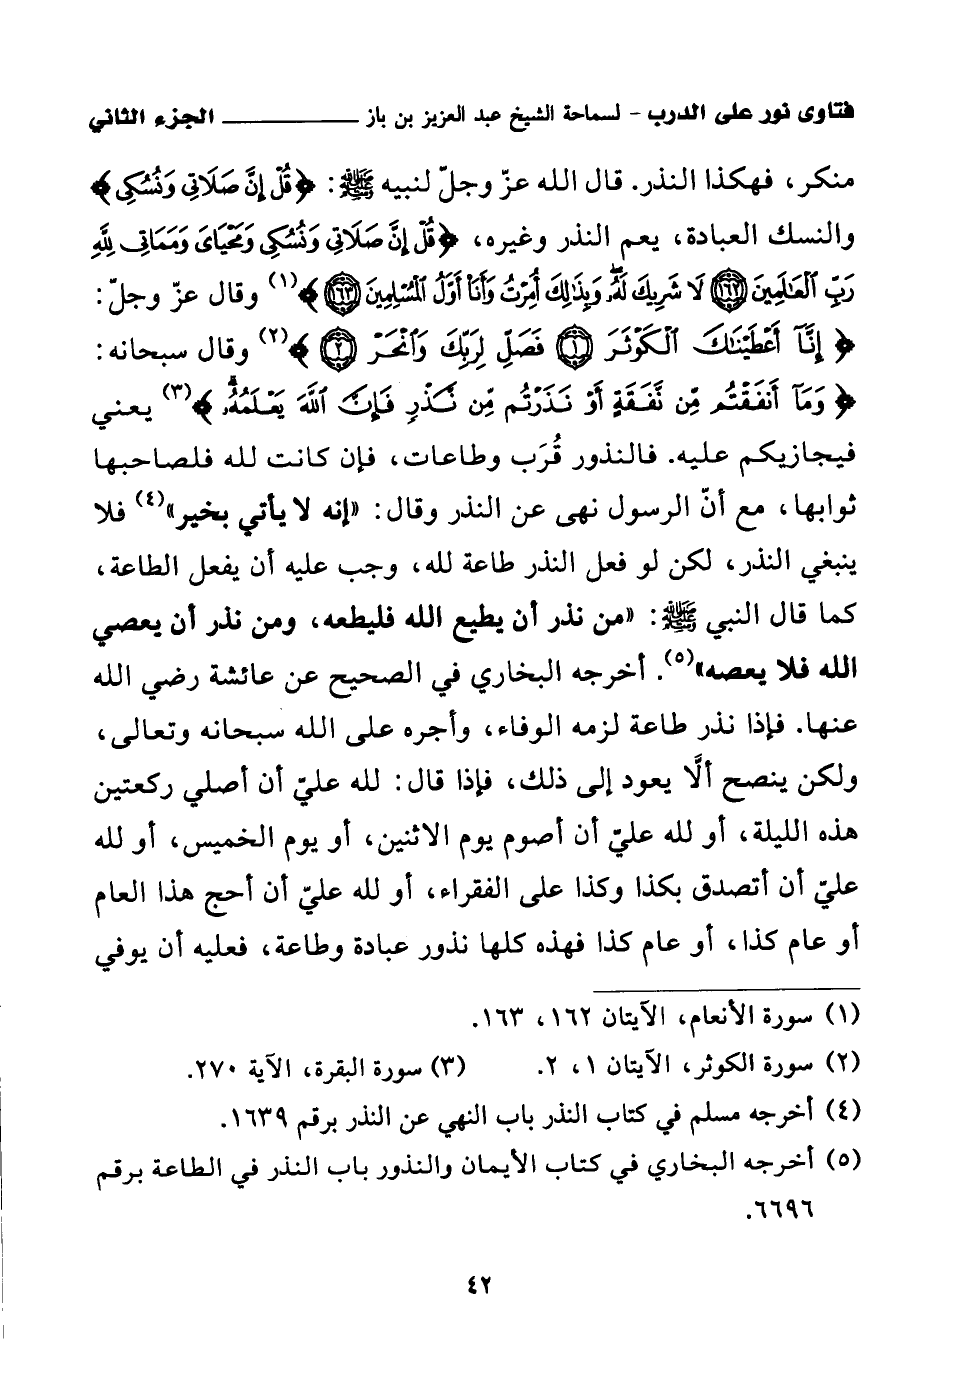 فتاوى نور على الدرب - لسماحة الشيخ عبد العزيز بن باز ــــــــــــ الجزء الثاني
منكر، فهكذا النذر. قال الله عزّ وجلّ لنبيه ﷺ: ﴿قُلْ إِنَّ صَلَاتِي وَنُسُكِي﴾
والنسك العبادة، يعم النذر وغيره، ﴿قُلْ إِنَّ صَلَاتِي وَنُسُكِي وَمَحْيَايَ وَمَمَاتِي لِلَّهِ
رَبِّ ٱلْعَالَمِينَ ﴿١٦٢﴾ لَا شَرِيكَ لَهُۥ وَبِذَٰلِكَ أُمِرْتُ وَأَنَا۠ أَوَّلُ ٱلْمُسْلِمِينَ ﴿١٦٣﴾﴾(١) وقال عزّ وجلّ:
﴿إِنَّآ أَعْطَيْنَٰكَ ٱلْكَوْثَرَ ﴿١﴾ فَصَلِّ لِرَبِّكَ وَٱنْحَرْ ﴿٢﴾﴾(٢) وقال سبحانه:
﴿وَمَآ أَنفَقْتُم مِّن نَّفَقَةٍ أَوْ نَذَرْتُم مِّن نَّذْرٍ فَإِنَّ ٱللَّهَ يَعْلَمُهُۥ﴾(٣) يعني
فيجازيكم عليه. فالنذور قُرَب وطاعات، فإن كانت لله فلصاحبها
ثوابها، مع أنّ الرسول نهى عن النذر وقال: «إنه لا يأتي بخير»(٤) فلا
ينبغي النذر، لكن لو فعل النذر طاعة لله، وجب عليه أن يفعل الطاعة،
كما قال النبي ﷺ: «من نذر أن يطيع الله فليطعه، ومن نذر أن يعصي
الله فلا يعصه»(٥). أخرجه البخاري في الصحيح عن عائشة رضي الله
عنها. فإذا نذر طاعة لزمه الوفاء، وأجره على الله سبحانه وتعالى،
ولكن ينصح ألَّا يعود إلى ذلك، فإذا قال: لله عليّ أن أصلي ركعتين
هذه الليلة، أو لله عليّ أن أصوم يوم الاثنين، أو يوم الخميس، أو لله
عليّ أن أتصدق بكذا وكذا على الفقراء، أو لله عليّ أن أحج هذا العام
أو عام كذا، أو عام كذا فهذه كلها نذور عبادة وطاعة، فعليه أن يوفي
(١) سورة الأنعام، الآيتان ١٦٢، ١٦٣.
(٢) سورة الكوثر، الآيتان ١، ٢. (٣) سورة البقرة، الآية ٢٧٠.
(٤) أخرجه مسلم في كتاب النذر باب النهي عن النذر برقم ١٦٣٩.
(٥) أخرجه البخاري في كتاب الأيمان والنذور باب النذر في الطاعة برقم
٦٦٩٦.
٤٢